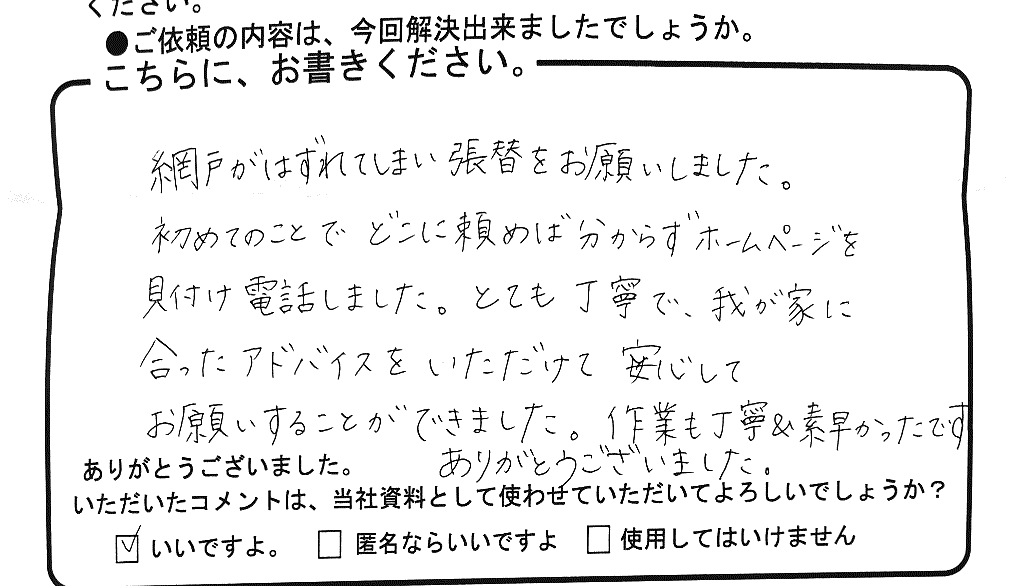 ください。
●ご依頼の内容は、今回解決出来ましたでしょうか。
こちらに、お書きください。
網戸がはずれてしまい張替をお願いしました。
初めてのことで どこに頼めば分からずホームページを
見付け電話しました。とても丁寧で、我が家に
合ったアドバイスをいただけて安心して
お願いすることができました。作業も丁寧&素早かったです
ありがとうございました。
ありがとうございました。
いただいたコメントは、当社資料として使わせていただいてよろしいでしょうか?
☑ いいですよ。 □ 匿名ならいいですよ □ 使用してはいけません